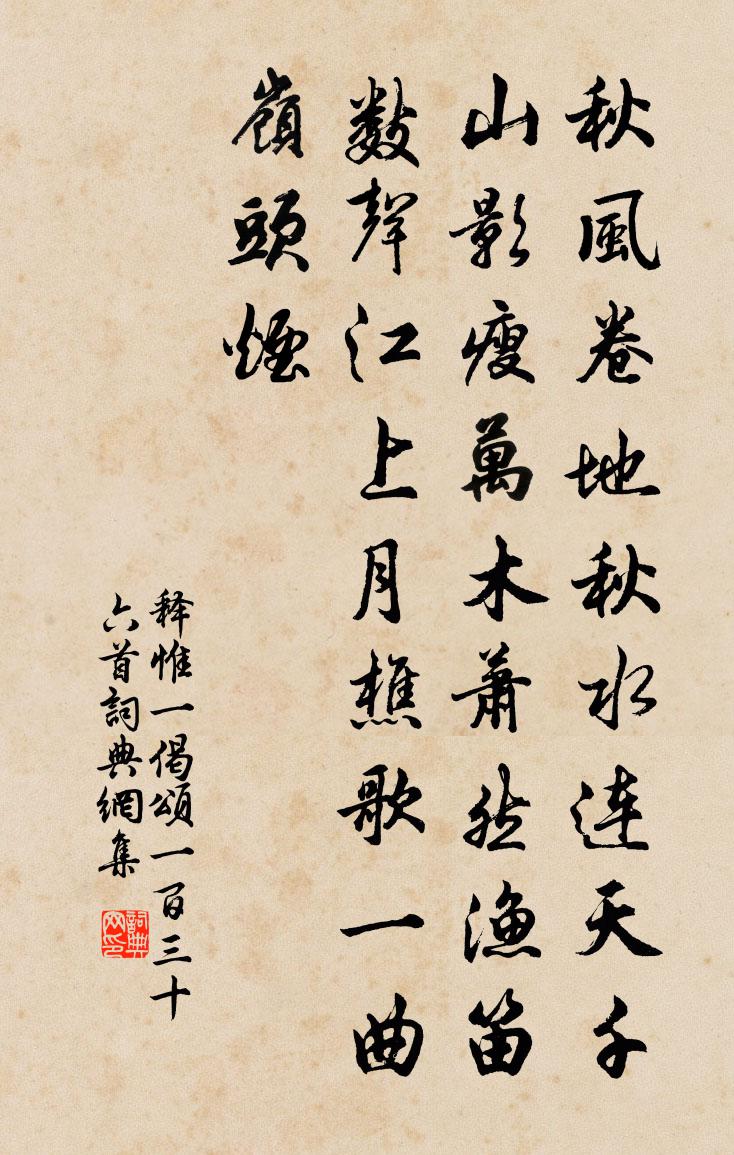 秋風卷地秋水連天千
山影瘦萬木蕭然漁笛
數聲江上月樵歌一曲
嶺頭煙
释惟一偈頌一百三十
六首詞典網集
詞典网印